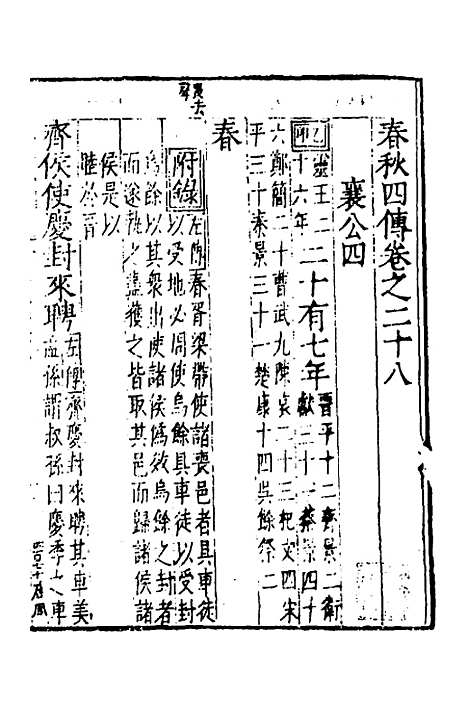 春秋四傳卷之二十八
襄公四
靈王二十六年
二十有七年
晉平十二齊景二衛獻三十一蔡景四十六鄭簡二十曹武九陳哀二十三杞文四宋平三十秦景三十一楚康十四吳餘祭二
春
附錄
左傳春胥梁帶使諸喪邑者具車徒以受地必周使烏餘具車徒以受封
烏餘以其衆出使諸侯偽效烏餘之封者而遂執之盡獲之皆取其邑而歸諸侯諸侯是以睦於晉
齊侯使慶封來聘
左傳齊慶封來聘其車美孟孫謂叔孫曰慶季之車